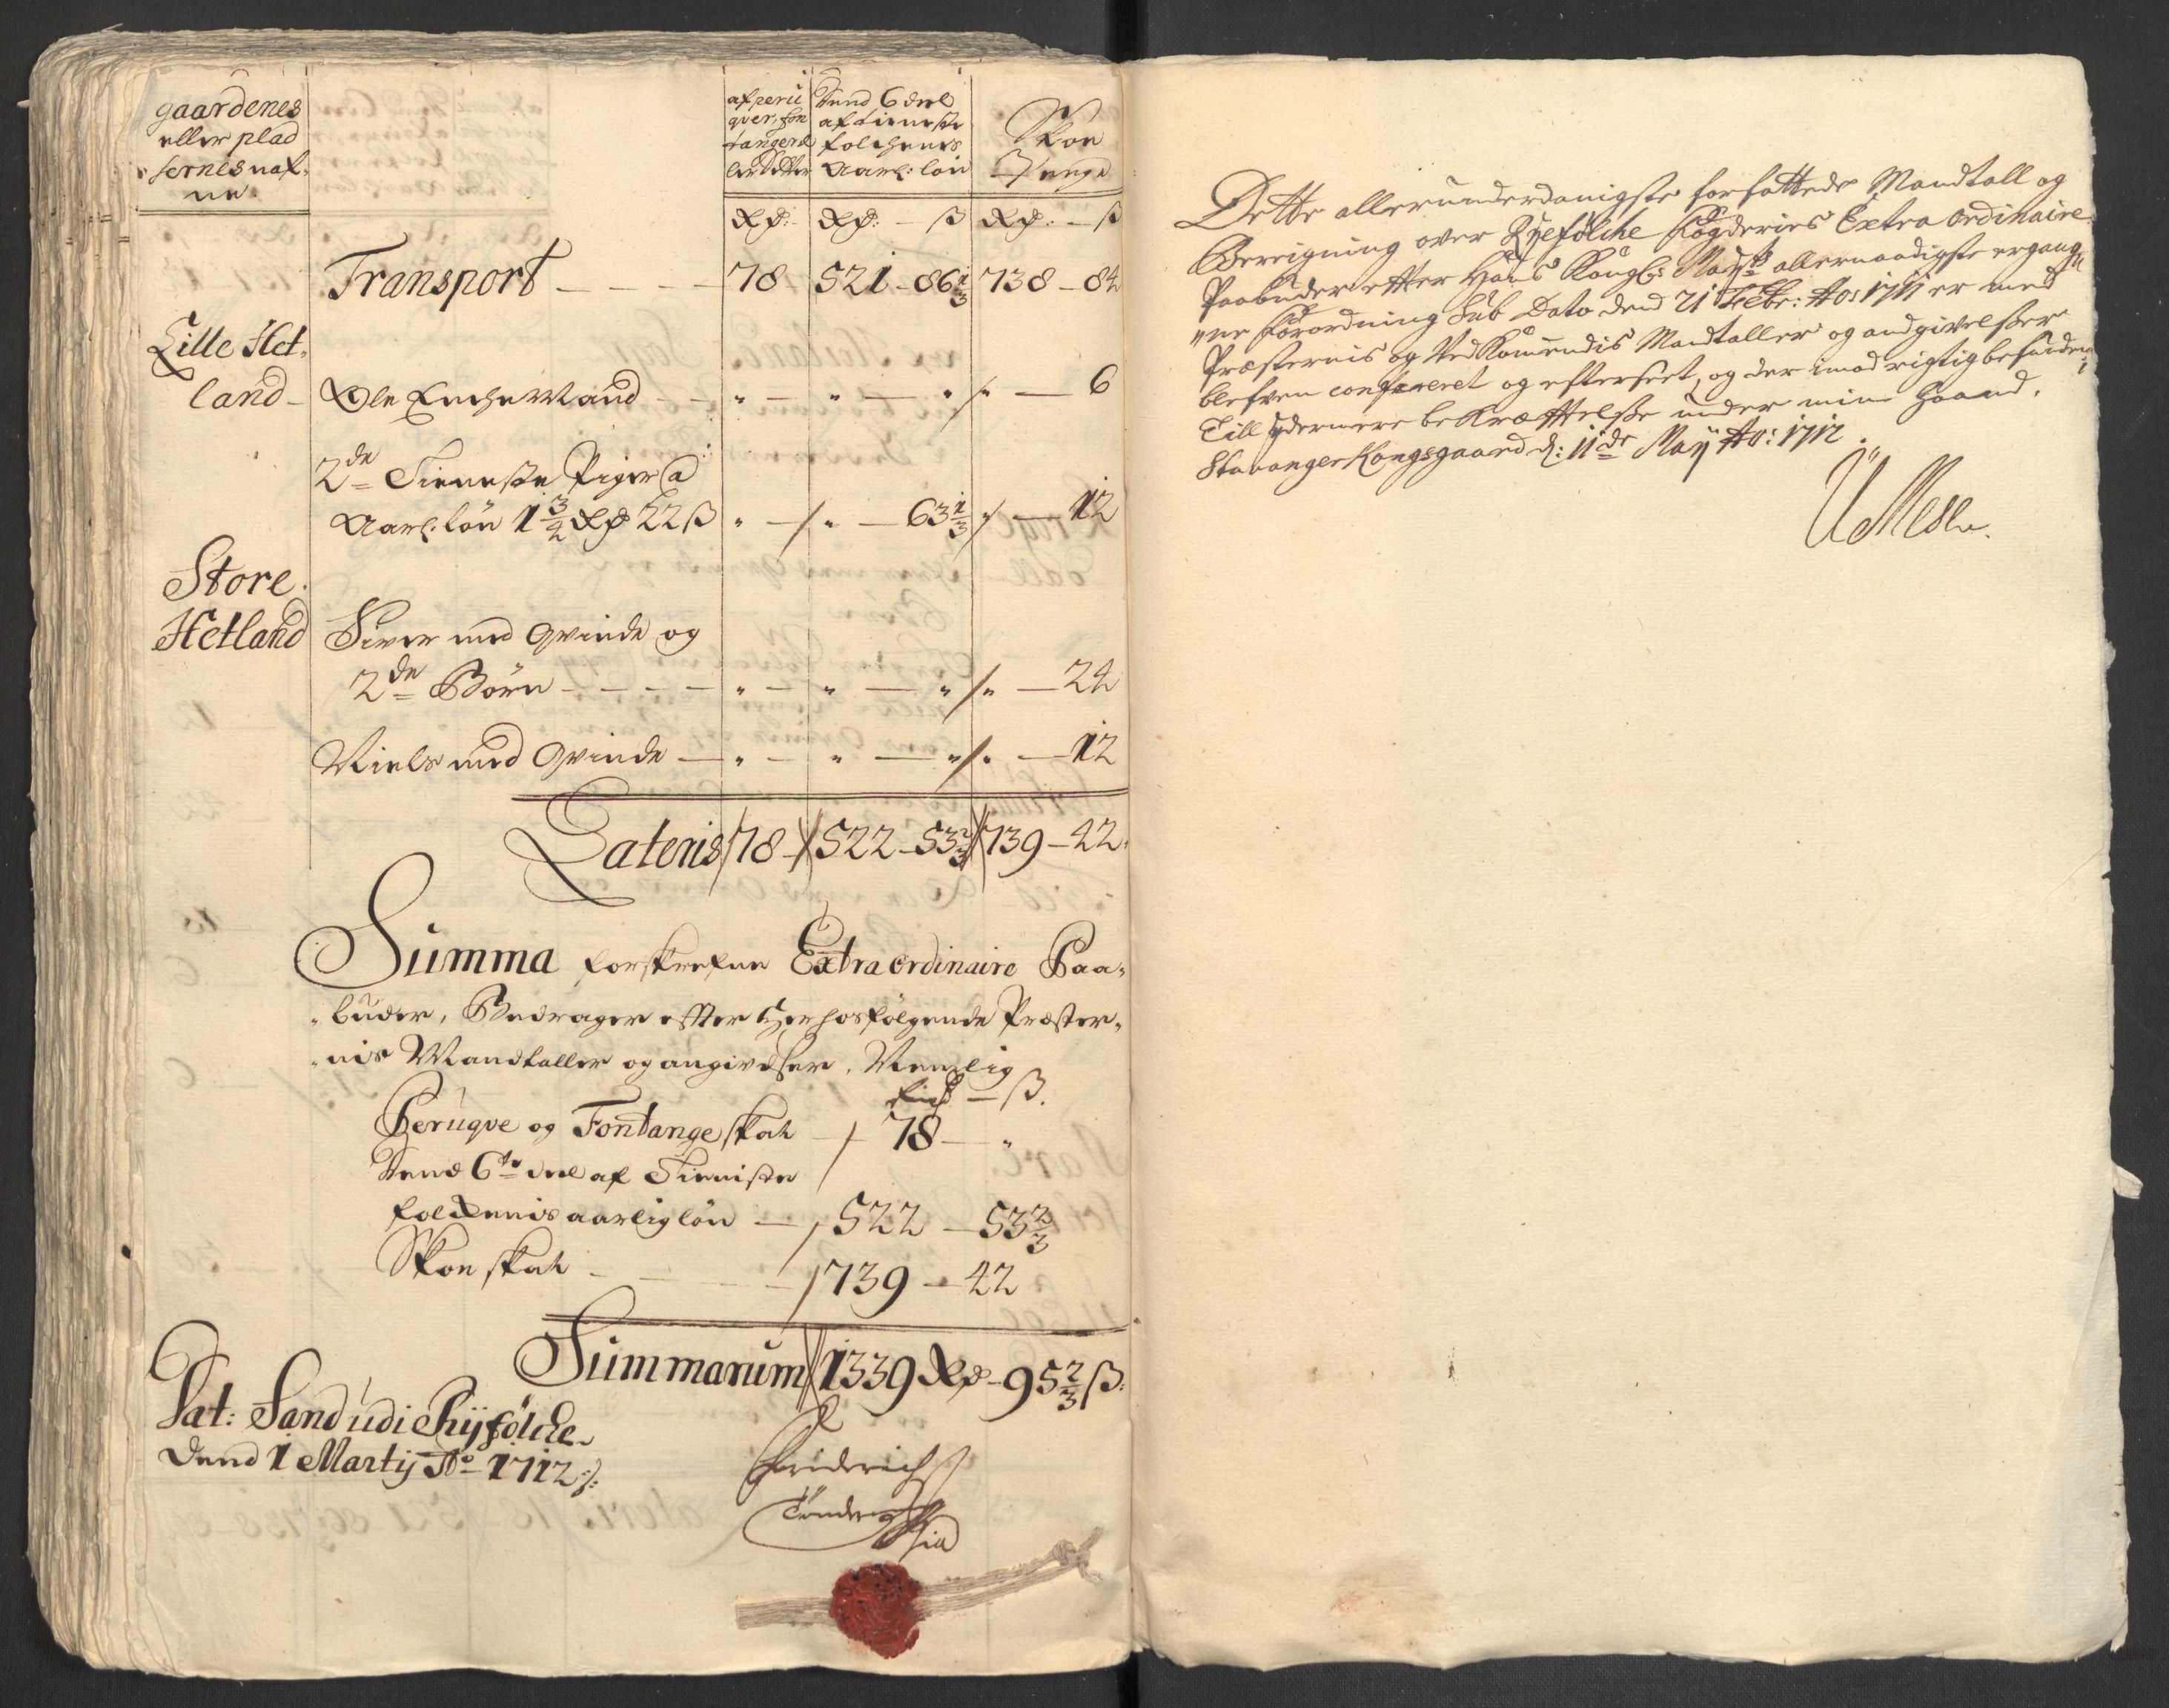 gaardenes
eller plad
sernes naf-
ne.
af peru
qver, fon
tangerd
Dend 6 deel
af tieneste
folchenes
Aarl: løn
Skoe
Penge
Rd: Rd: – ß Rd: – ß
Transport – – – 78 521 – 86 1/3 738 – 84
Lille Het-
land – Ole Enche Mand – " – " – " – 6
2de Tieneste Piger a
Aarl: løn 1 3/4 Rd 22 ß " – " – 63 1/3 " – 12
Store
Hetland Siver med Qvinde og
2de Børn – – – " – " – " " – 24
Niels med Qvinde – " – " – " " – 12
Lateris 78 – 522 – 53 2/3 739 – 42
Summa forskrefne Extraordinaire Paa-
buder, Bedrager efter herhosfølgende Præster-
nis Mandtaller og angivelser, Nemlig
Rixd – ß.
Peruqve og Fontange skat – 78 – "
Dend 6te deel af Tieniste
folckenis aarlig løn – 522 – 53 2/3
Skoe skat – – 739 – 42
Summarum 1339 Rd – 95 2/3 ß:
Dat: Sand udi Rijfølche
Dend 1 Martij Ao 1712
Friderich
Tønder
Dette allerunderdanigste forfattede Mandtall og
Bereigning over Ryefølche fogderies Extra ordinaire
Paabuder efter Hans Kongl: Mayts allernaadigste ergang-
"ne forordning Sub Dato dend 21 Febr: Ao 1711 er med
Præsternis og Vedkommendis Mandtaller og andgivelser
blefven confereret og efterseet, og der imod rigtig befunden,
Till ydermere bekræftelse under min Haand.
Stavanger Kongsgaard d: 11de Maij Ao: 1712.